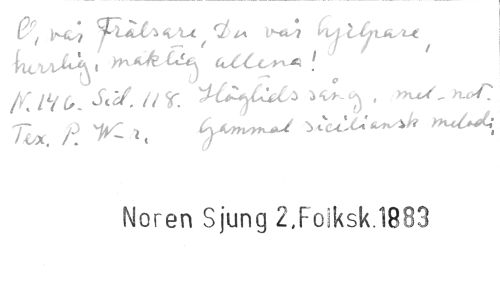 O, vår Frälsare, Du vår hjälpare,
herrlig, mäktig allena!
N. 146. Sid. 118. Högtidssång. mel-not.
Tex. P. W-r. Gammal siciliansk melodi,
Noren Sjung 2, Folksk. 1883